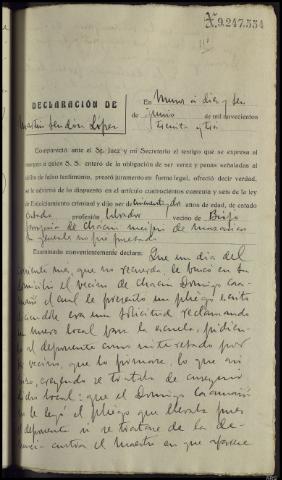 X.9.247.554
DECLARACIÓN DE
Martín Sendón López
En Muros a diez y seis
de Junio de mil novecientos
treinta y tres
Compareció ante el Sr. Juez y mi Secretario el testigo que se expresa al
margen a quien S. S. enteró de la obligación de ser veraz y penas señaladas al
delito de falso testimonio, prestó juramento en forma legal, ofreció decir verdad,
se le advirtió de lo dispuesto en el artículo cuatrocientos cuarenta y seis de la ley
de Enjuiciamiento criminal y dijo ser de cincuenta y dos años de edad, de estado
Casado, profesión labrador vecino de
de Chacín mejor de
no fué procesado
Examinado convenientemente declara: Que un día del
corriente mes, que no recuerda, le buscó en su
domicilio el vecino de Chacín Domingo
el cual le presentó un pliego escrito
era una solicitud reclamando
un nuevo local para la escuela, pidien-
al deponente como interesado por
vecino, que lo firmase, lo que
creyendo se trataba de
dicho local: que el Domingo
no le leyó el pliego que llevaba pues
deponente si se tratase de la de-
contra el maestro en que aparece